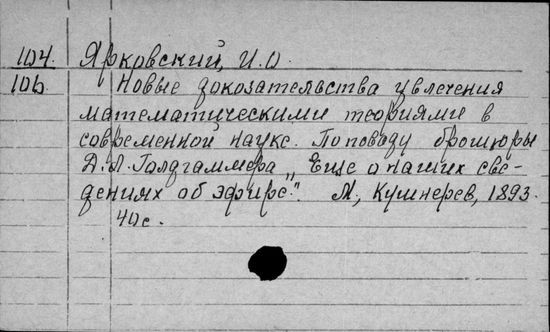 104. Ярковский, И.О.
106. Новые доказательства увлечения
математическими теориями в
современной науке. По поводу брошюры
Д.А. Голдгаммера „Еще о наших све-
дениях об эфире". М., Кушнерев, 1893.
40 с.